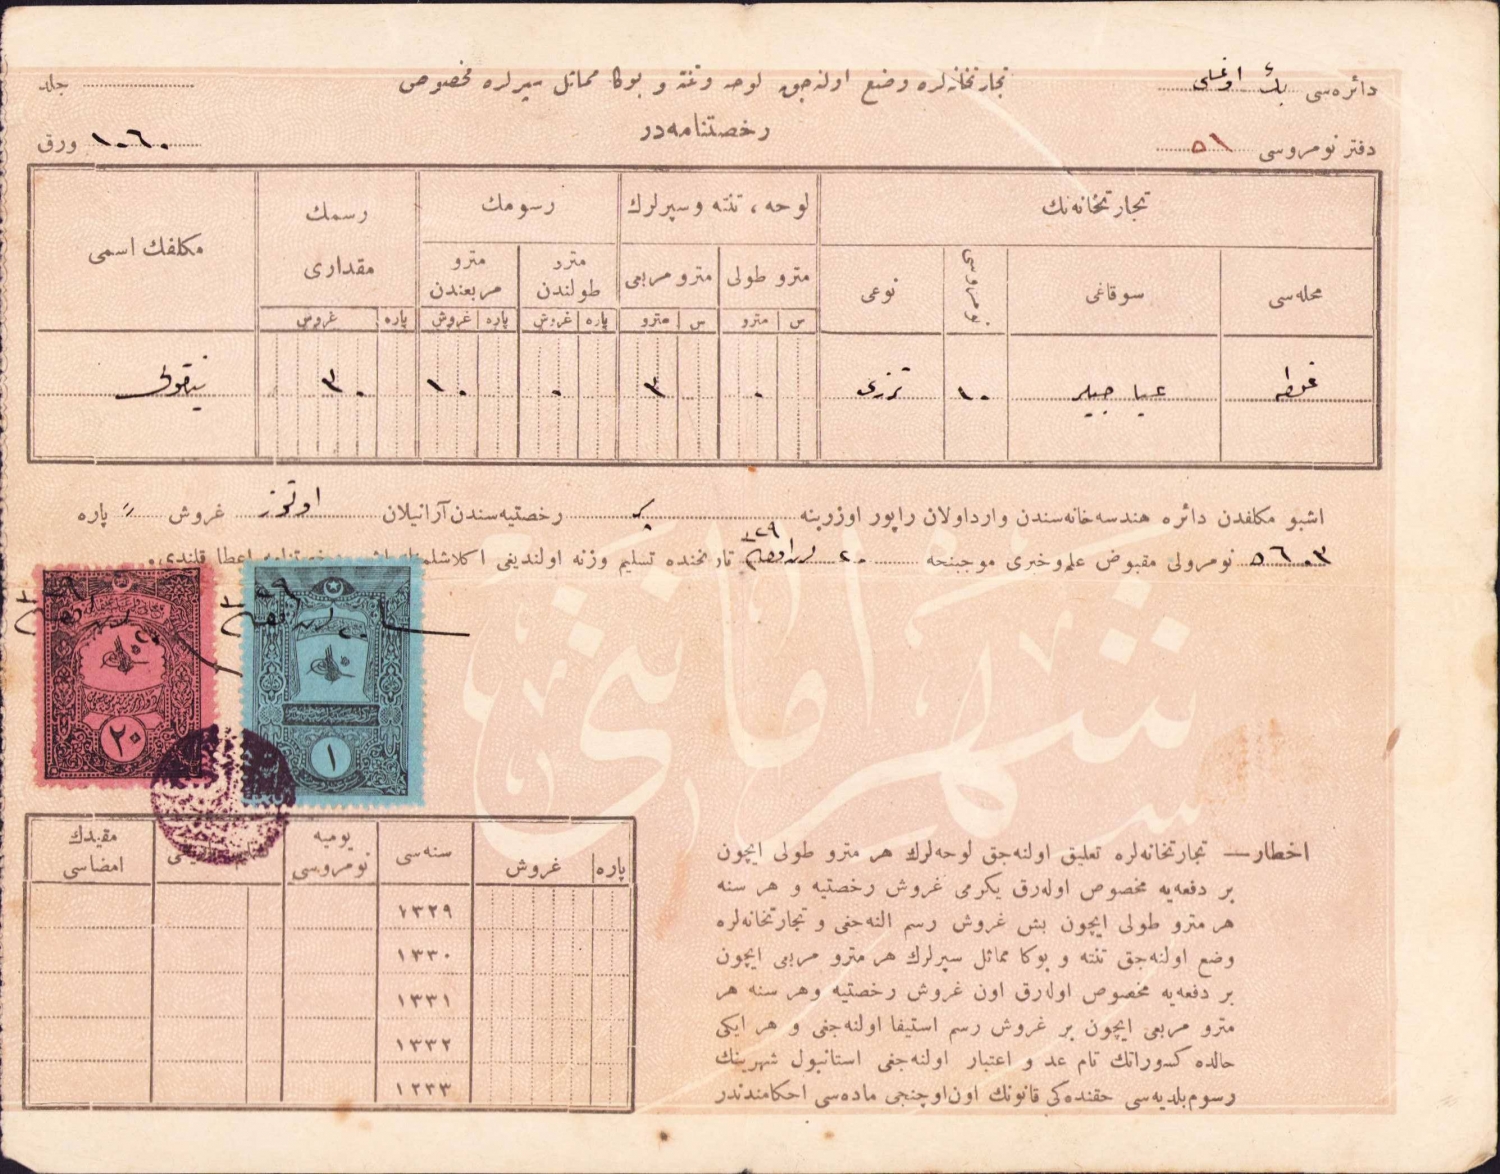 دائره‌سی بك اوغلی
تجارتخانه‌لره وضع اولنه‌جق لوحه وتنته و بوكا مماثل سپرلره مخصوص
جلد
دفتر نومروسی ٥١
رخصتنامه‌در
١٠٦٠ ورق
تجارتخانه‌نك
لوحه ، تنته وسپرلرك
رسومك
رسمك مقداری
مكلفك اسمی
محله‌سی
سوقاغی
نومروسی
نوعی
مترو طولی
مترو مربعی
مترو طولندن
مترو مربعندن
س مترو س مترو پاره غروش پاره غروش پاره غروش
غلطه
١٠
ترزی
٠
٣
٠
١٠
٣٠
نیقولی
اشبو مكلفدن دائره هندسه‌خانه‌سندن وارداولان راپور اوزرینه رخصتیه‌سندن آرانیلان اوتوز غروش پاره
٥٦٠٣ نومرولی مقبوض علم‌وخبری موجبنجه ٢٠ ٣٢٩ تاریخنده تسلیم وزنه اولندیغی اعطا قلندی.
٣٢٩
٣٢٩
٢٠
١
شهر امانتی
پاره
غروش
سنه‌سی
یومیه نومروسی
مقیدك امضاسی
١٣٢٩
١٣٣٠
١٣٣١
١٣٣٢
١٣٣٣
اخطار — تجارتخانه‌لره تعلیق اولنه‌جق لوحه‌لرك هر مترو طولی ایچون
بر دفعه‌یه مخصوص اوله‌رق یكرمی غروش رخصتیه و هر سنه
هر مترو طولی ایچون بش غروش رسم النه‌جغی و تجارتخانه‌لره
وضع اولنه‌جق تنته و بوكا مماثل سپرلرك هر مترو مربعی ایچون
بر دفعه‌یه مخصوص اوله‌رق اون غروش رخصتیه وهر سنه هر
مترو مربعی ایچون بر غروش رسم استیفا اولنه‌جغی و هر ایكی
حالده كسوراتك تام عد و اعتبار اولنه‌جغی استانبول شهرینك
رسوم‌بلدیه‌سی حقنده‌كی قانونك اون‌اوچنجی ماده‌سی احكامندندر